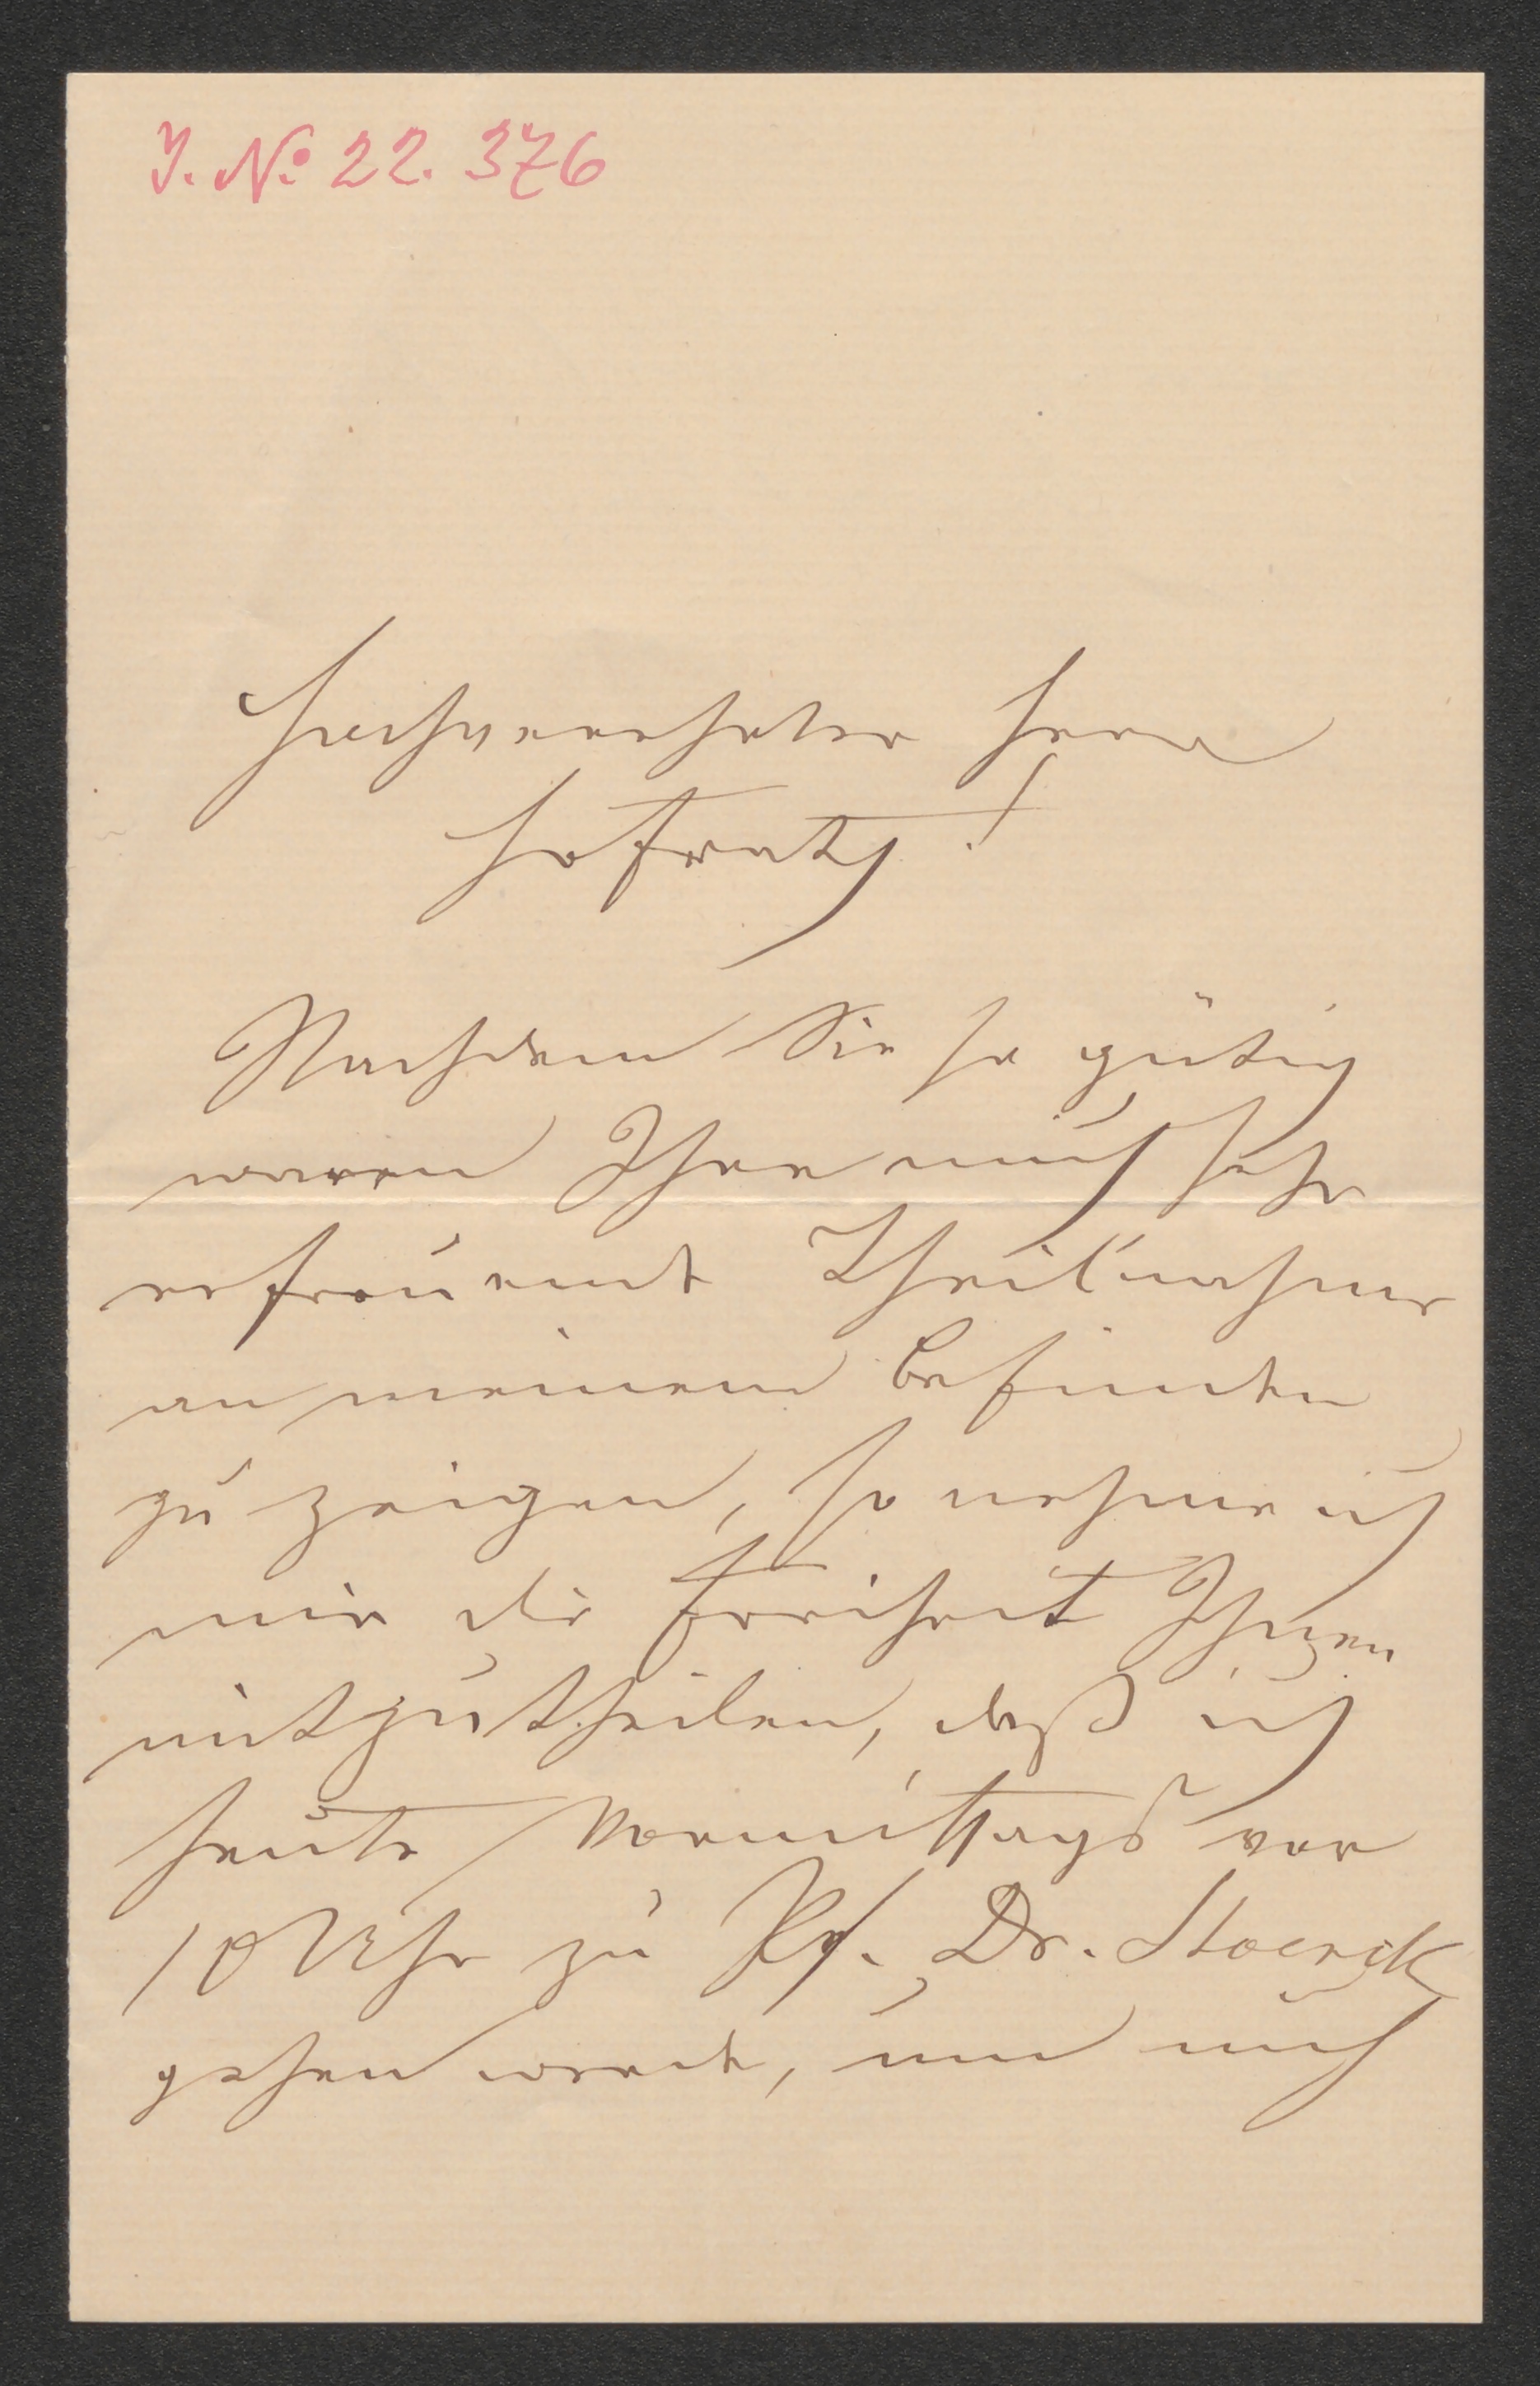 J. No 22.376
Hochverehrter Herr
Hofrath!
Nachdem Sie so gütig
waren Ihre mich sehr
erfreuende Theilnahme
an meinem Befinden
zu zeigen, so nehme ich
mir die Freiheit Ihnen
mitzutheilen, daß ich
heute Vormittags vor
10 Uhr zu Pf. Dr. Stoerck
gehen werde, um mich